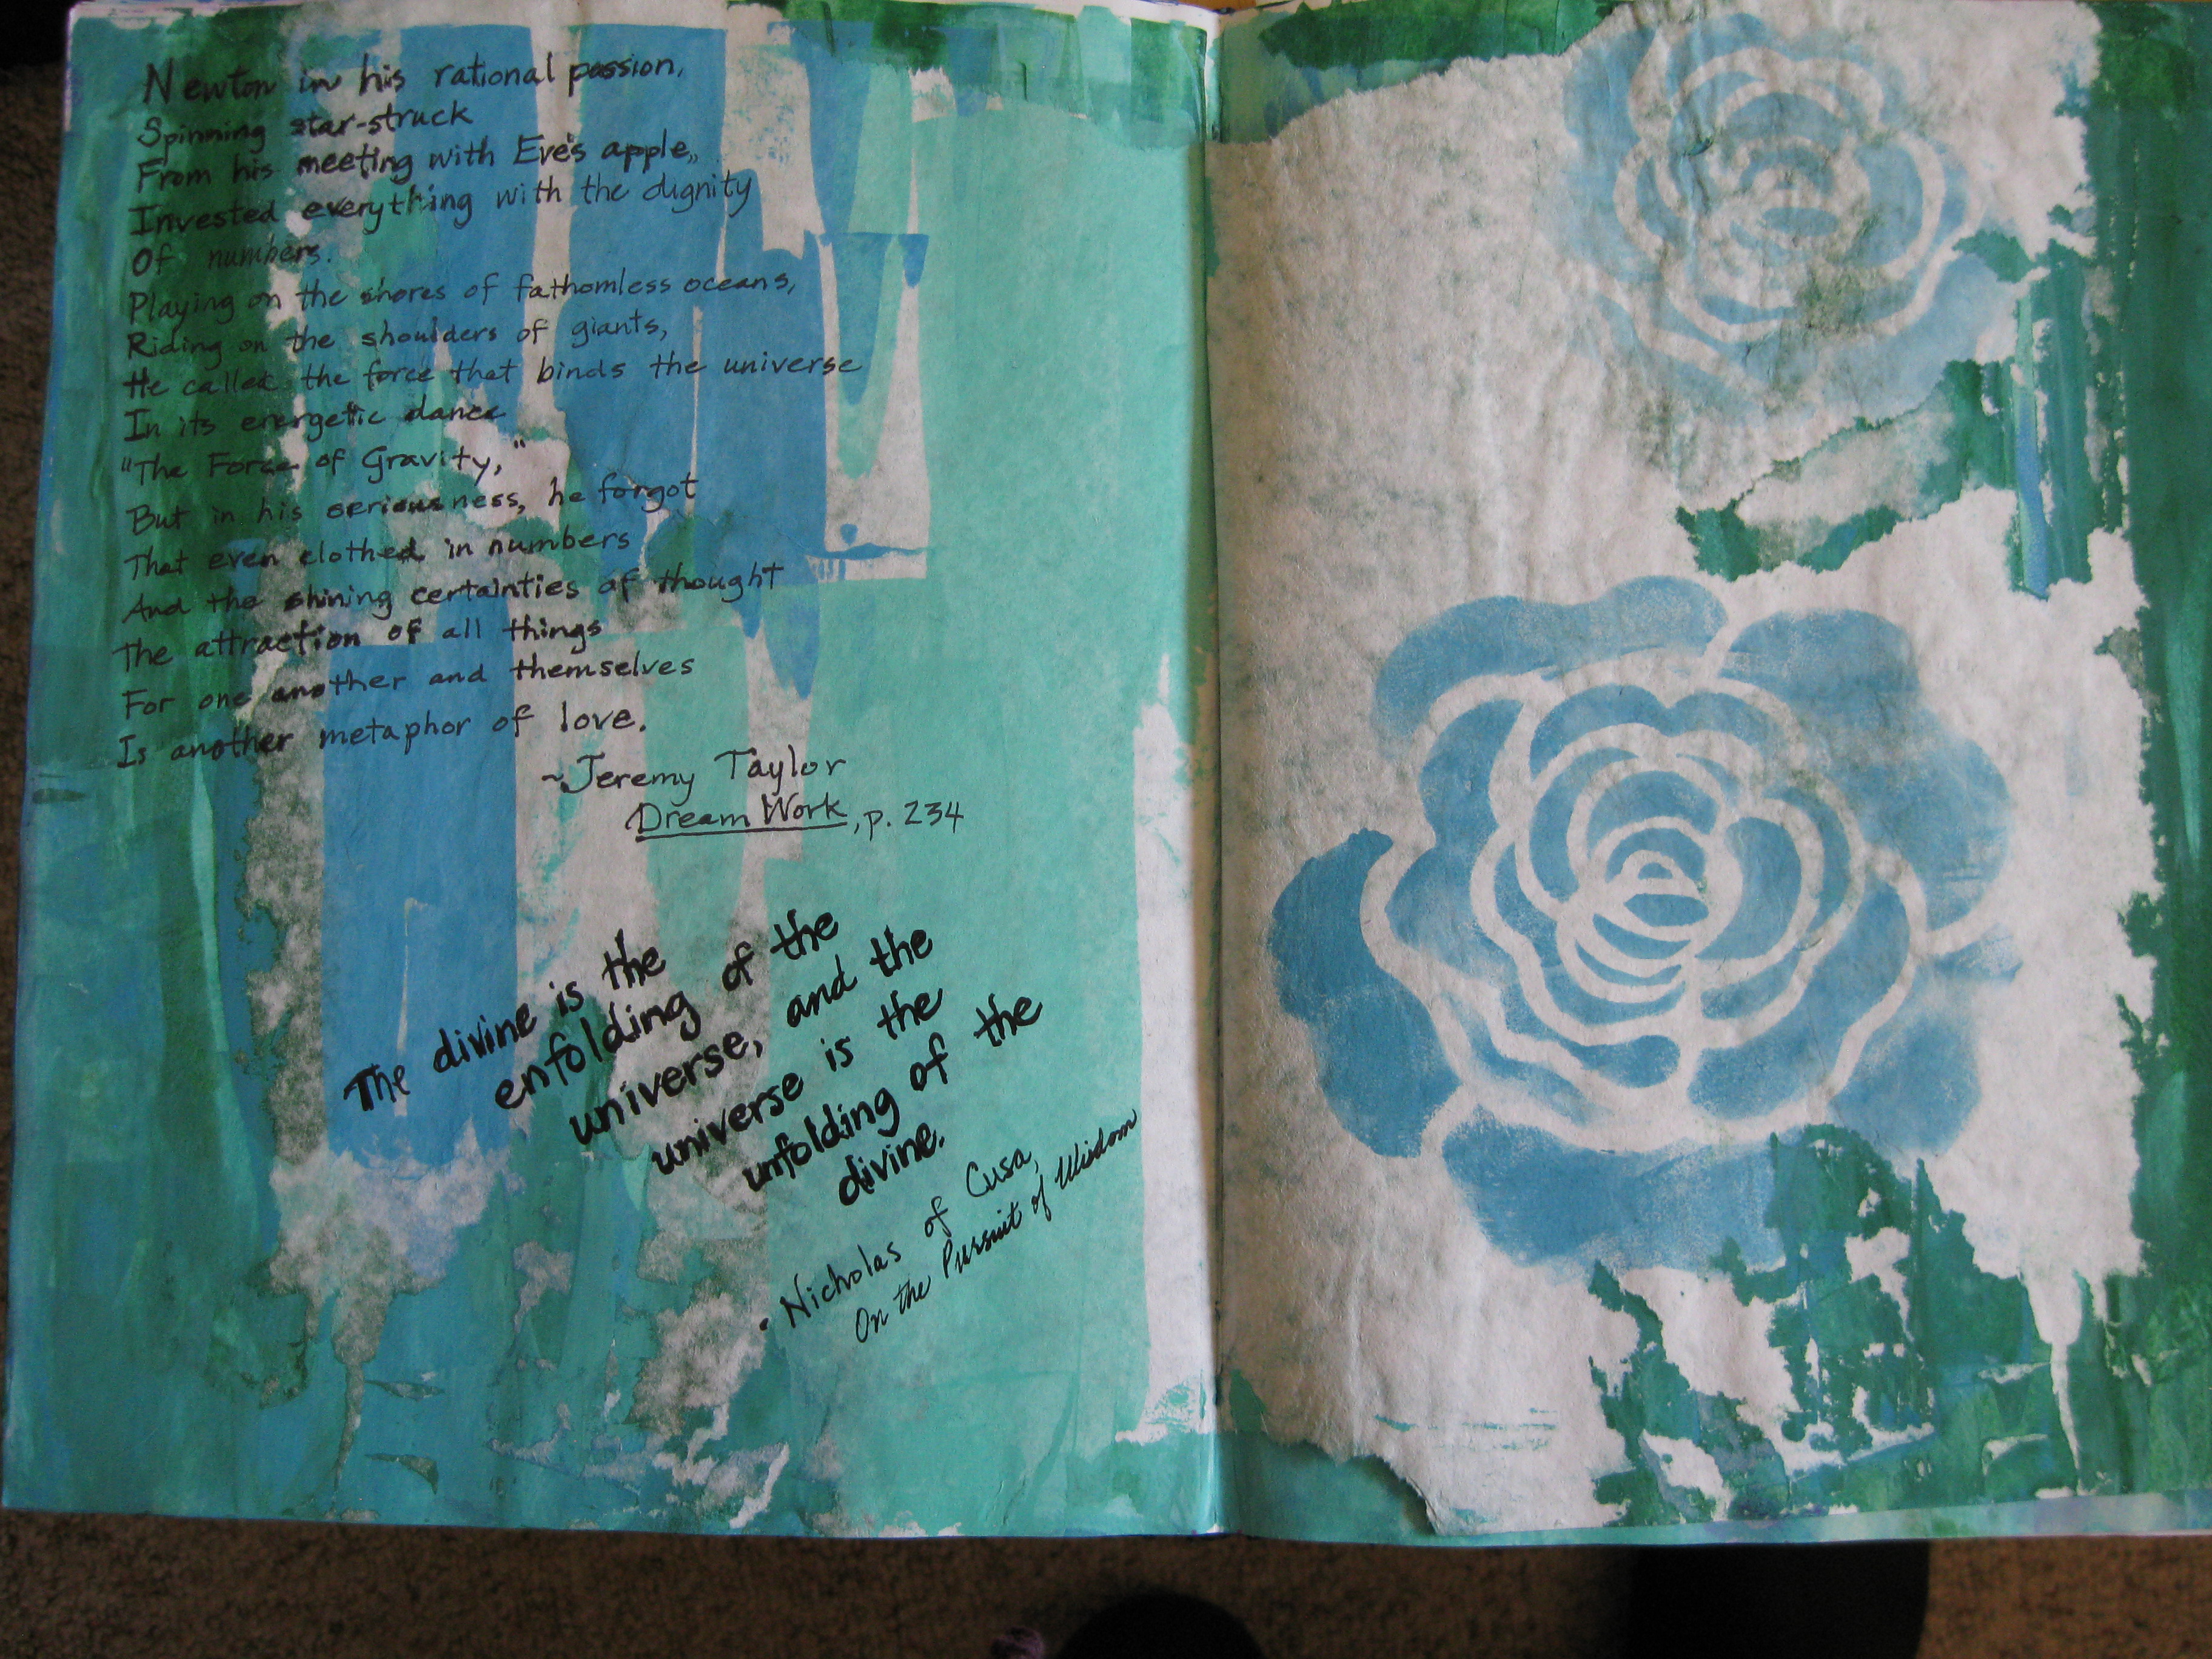 Newton in his rational passion,
Spinning star-struck
From his meeting with Eve's apple,
Invested everything with the dignity
Of numbers.
Playing on the shores of fathomless oceans,
Riding on the shoulders of giants,
He called the force that binds the universe
In its energetic dance
"The Force of Gravity,"
But in his seriousness, he forgot
That even clothed in numbers
And the shining certainties of thought
The attraction of all things
For one another and themselves
Is another metaphor of love.
~Jeremy Taylor
Dream Work, p. 234
The divine is the
enfolding of the
universe, and the
universe is the
unfolding of the
divine.
• Nicholas of Cusa,
On the Pursuit of Wisdom